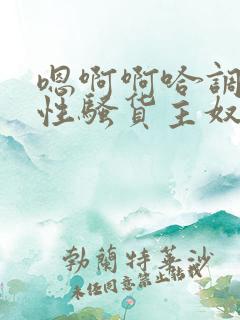 嗯啊啊哈調
性騷货主奴
勃蘭特萊沙
未经同意禁止转载